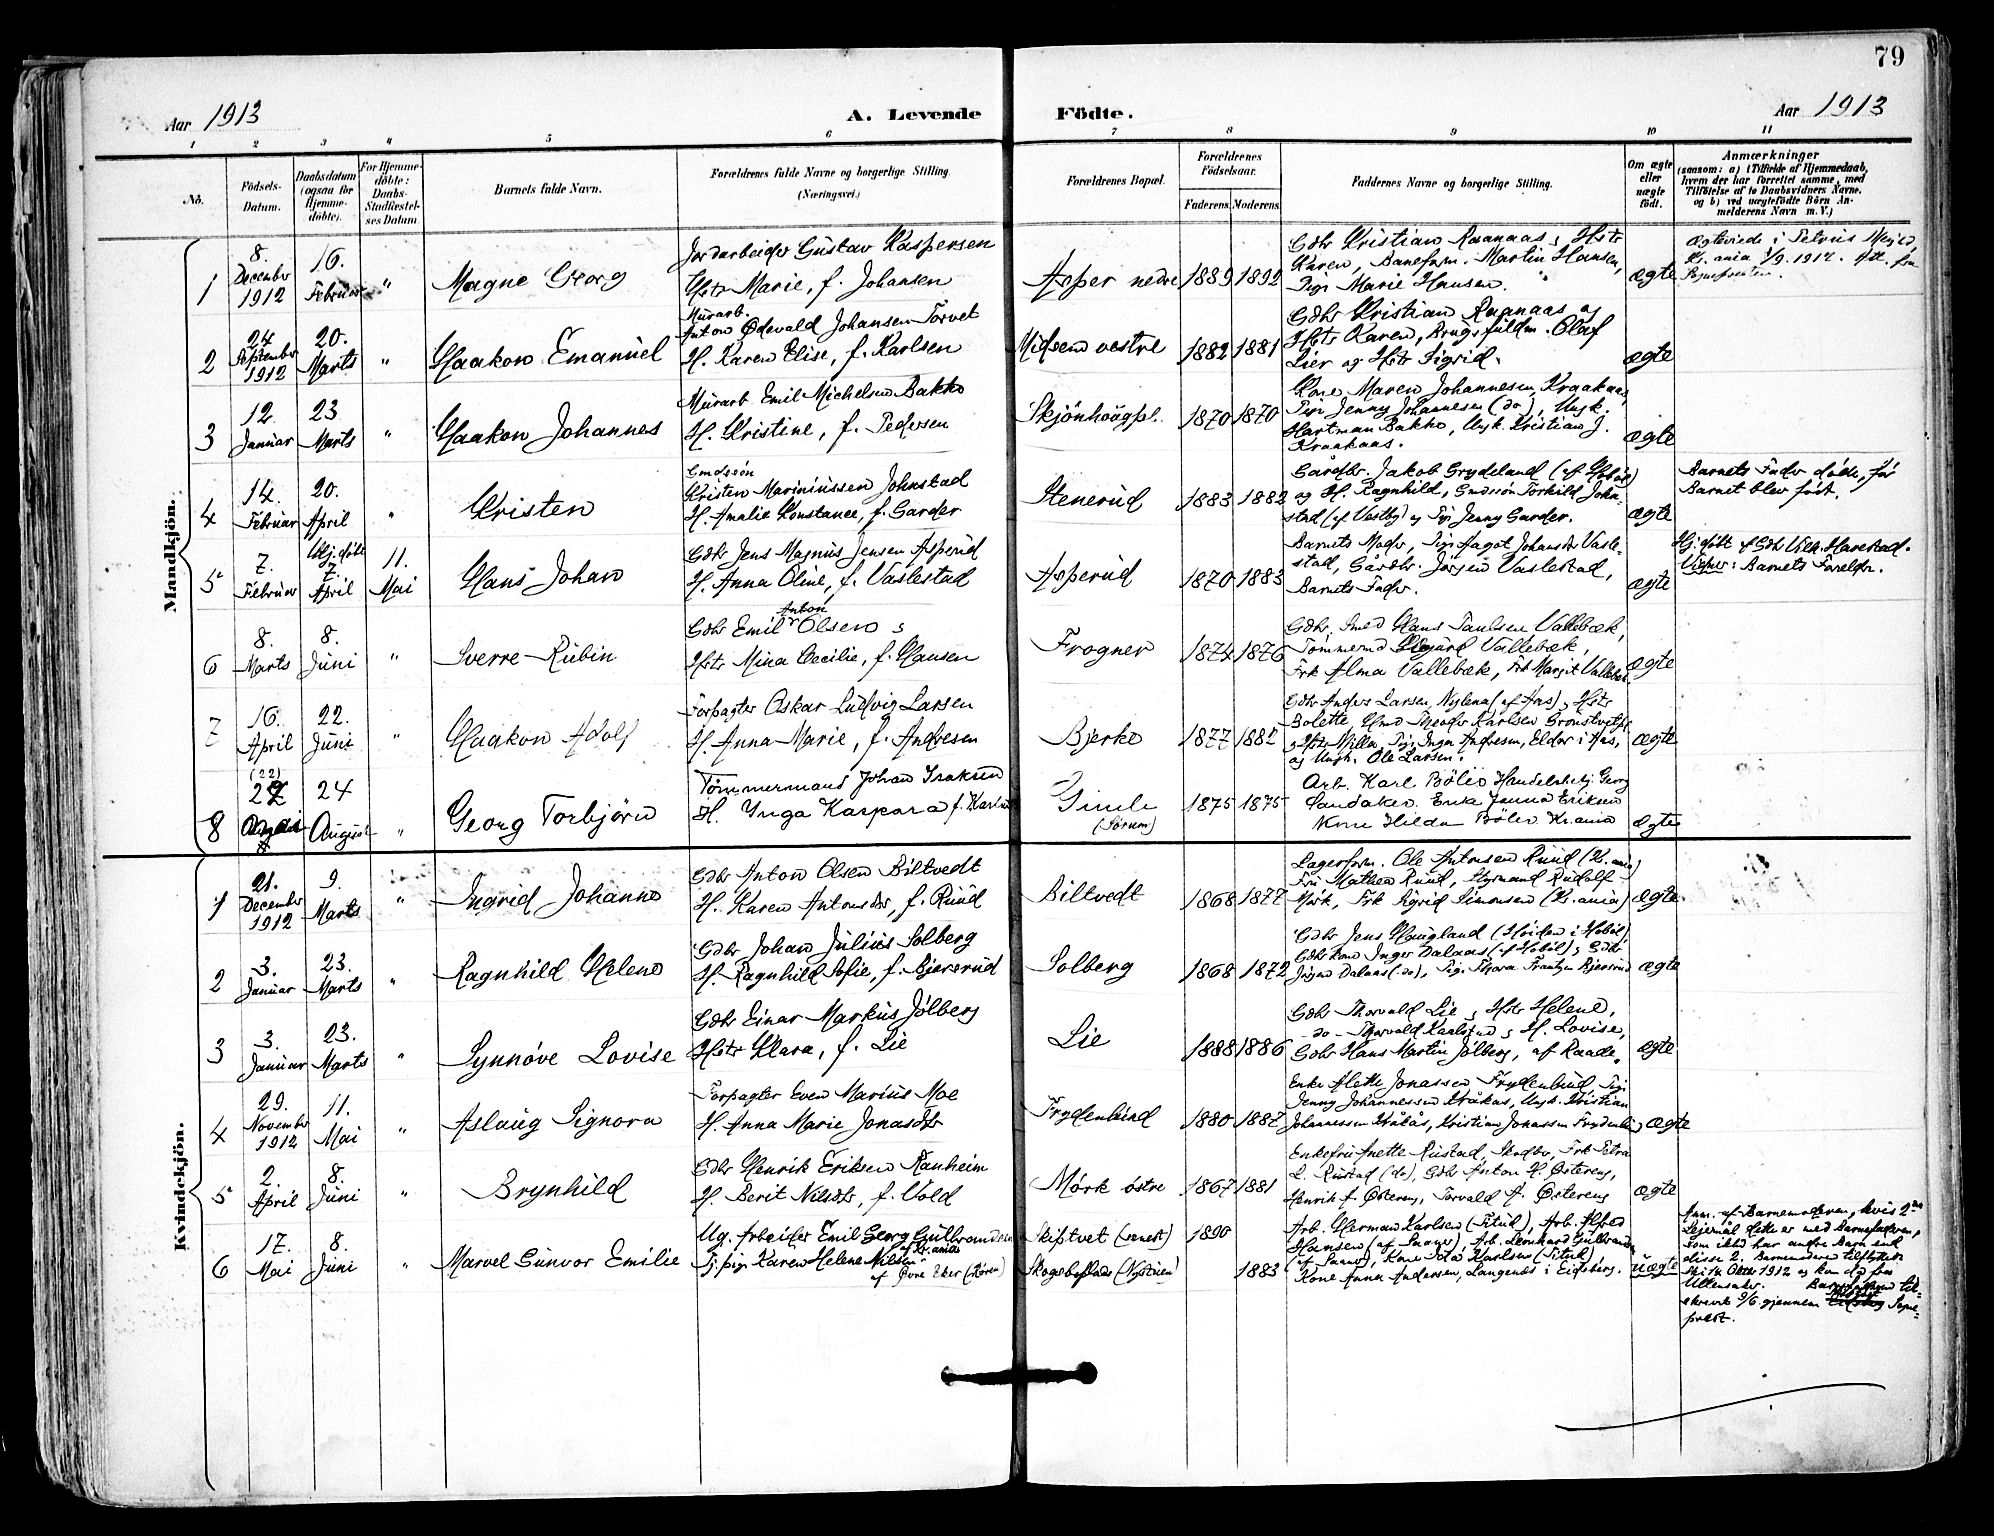 79
Aar 1913
A. Levende Födte.
Aar 1913
1 2 3 4 5 6 7 8 9 10 11
No.
Födsels-Datum.
Daabsdatum (ogsaa for Hjemme-döbte).
For Hjemme-döbte: Daabs-Stadfæstel-ses Datum
Barnets fulde Navn.
Forældrenes fulde Navne og borgerlige Stilling.
(Næringsvei.)
Forældrenes Bopæl.
Forældrenes Födselsaar.
Faderens. Moderens.
Faddernes Navne og borgerlige Stilling.
Om ægte eller uægte födt.
Anmærkninger
(saasom: a) i Tilfælde af Hjemmedaab, hvem der har forrettet samme, med Tilföielse af to Daabsvidners Navne. og b) ved uægtefödte Börn An-melderens Navn m. V.)
Mandkjön.
1 8. December 1912 16. Februar " Magne Georg
Jordarbeider Gustav Kaspersen
Hstr Marie, f. Johansen
Asper nedre 1889 1892
Gdbr Kristian Raanaas, Hstr
Karen, Baneform. Martin Hansen,
Pige Marie Hansen.
ægte
2 24 September 1912 20. Marts " Haakon Emanuel
Murarb.
Anton Ødevald Johansen Torvet
H. Karen Elise, f. Karlsen
Midsem vestre 1882 1881
Gdbr Kristian Raanaas og
Hstr Karen, Brugsfuldm. Olaf
Lier og Hstr Sigrid.
ægte
3 12 Januar 23 Marts " Haakon Johannes
Murarb. Emil Michelsen Bakko
H. Kristine, f. Pedersen
Skjönhaugpl. 1870 1870
Kone Maren Johannesen, Kraakaas,
Pige Jenny Johannesen (do), Ungk.
Hartman Bakko, Ungk. Kristian J.
Kraakaas.
ægte
4 14. Februar 20. April " Kristen
Gmdssön
Kristen Mariniussen Johnstad
H. Amalie Konstance, f. Garder
Stenerud 1883 1882
Gårdbr. Jakob Grydeland (af Hobøl)
og H. Ragnhild, Gmdssön Torkild John-
stad (af Vestby) og Pige Jenny Garder.
ægte
Barnets Fader döde, för
Barnet blev født.
5 7. Februar Hj.døbt 7. April 11. Mai Hans Johan
Gdbr Jens Magnus Jensen Asperud
H. Anna Oline, f. Vaslestad
Asperud 1870 1883
Barnets Moder, Pige Hagot Johansdtr Vasle-
stad, Gårdbr. Jörgen Vaslestad,
Barnets Fader.
ægte
Hj.døbt af Gdbr Vilh. Harestad.
Vidner: Barnets Foreldre.
6 8. Marts 8. Juni " Sverre Rubin
Anton
Gdbr Emil Olsen og
Hstr Mina Cecilie, f. Hansen
Frogner 1874 1876
Gdbr. Smed Hans Paulsen Vallebæk,
Tömmermd Sigurd Vallebæk,
Frk Alma Vallebæk, Frk Margit Vallebæk
ægte
7 16. April 22. Juni " Haakon Adolf
Forpagter Oskar Ludvig Larsen
H. Anna Marie, f. Andresen
Bjerke 1877 1882
Gdbr Anders Larsen, Nylena (af Aas), Hstr
Bolette, Gmd Theodor Karlsen
og Hstr Milla, Pige Inga Andresen, Eldor i Aas,
og Ungk. Ole Larsen.
ægte
8 (22) 24 August " Georg Torbjørn
Tömmermand Johan Isaksen
H. Inga Kaspara f. Karlsen
Gimle (Sörum) 1875 1875
Arb. Karl Bølio Handelsbetj. Georg
Sandaker. Enke Janna Eriksen
Kone Hilda Bølio Kr.ania
ægte
Kvindekjön.
1 21. December 1912 9. Marts " Ingrid Johanne
Gdbr Anton Olsen Biltvedt
H. Karen Antonsdtr, f. Ruud
Biltvedt 1868 1877
Lagerform. Ole Antonsen Ruud (Kr.ania)
Fru Mathea Ruud, Styrmand Rudolf
Mörk, Frk Sigrid Simonsen (Kr.ania)
ægte
2 3. Januar 23. Marts " Ragnhild Helene
Gdbr Johan Julius Solberg
H. Ragnhild Sofie, f. Bjererud
Solberg 1868 1872
Gdbr Jens Haugland (Høiden i Hobøl)
Gdbr Kone Inger Dalaas (af Hobøl), Gdbr
Jörgen Dalaas (do), Pige Thora Frantzen Bjererud
ægte
3 3. Januar 23. Marts " Synnöve Lovise
Gdbr Einar Markus Jölberg
Hstr Klara, f. Lie
Lie 1888 1886
Gdbr Thorvald Lie, Hstr Helene,
- do - Thorvald Karlstad, H. Lovise,
Gdbr Hans Martin Jölberg, af Raade.
ægte
4 29. November 1912 11. Mai " Aslaug Signora
Forpagter Even Marius Moe
H. Anna Marie Jonasdtr
Frydenlund 1880 1887
Enke Alette Jonassen Frydenlund, Pige
Jenny Johannessen Kråkås, Ungk. Kristian
Johannessen Kråkås, Kristian Jonassen Frydenlund
ægte
5 2. April 8. Juni " Brynhild
Gdbr Henrik Eriksen Ranheim
H. Berit Nilsdtr, f. Vold
Mörk östre 1867 1881
Enkefru Anette Rustad, Skodbr, Frk Petra
L. Rustad (do), Gdbr Anton H. Østereng,
Henrik A. Østereng, Torvald A. Østereng
ægte
6 17. Mai 8. Juni Marvel Gunvor Emilie
Ug. Arbeider Emil Georg Gulbrandsen
af Kr.ania
Tj. pige Karen Helene Nilsen
af Øvre Eker (Kören)
Skiptvet (senest) 1890
1883
Arb. Herman Karlsen (Fituk), Arb. Alfred
Hansen, Arb. Leonhard Gulbrandsen
Karlsen (Fituk)
Kone Anna Andersen, Langenes i Eidsberg.
uægte
Anm. af Barnemoderen, hvis 2den
Leiermål dette er med Barnefaderen,
som ikke har andre Barn end
disse 2.
Ullensaker.
prest.